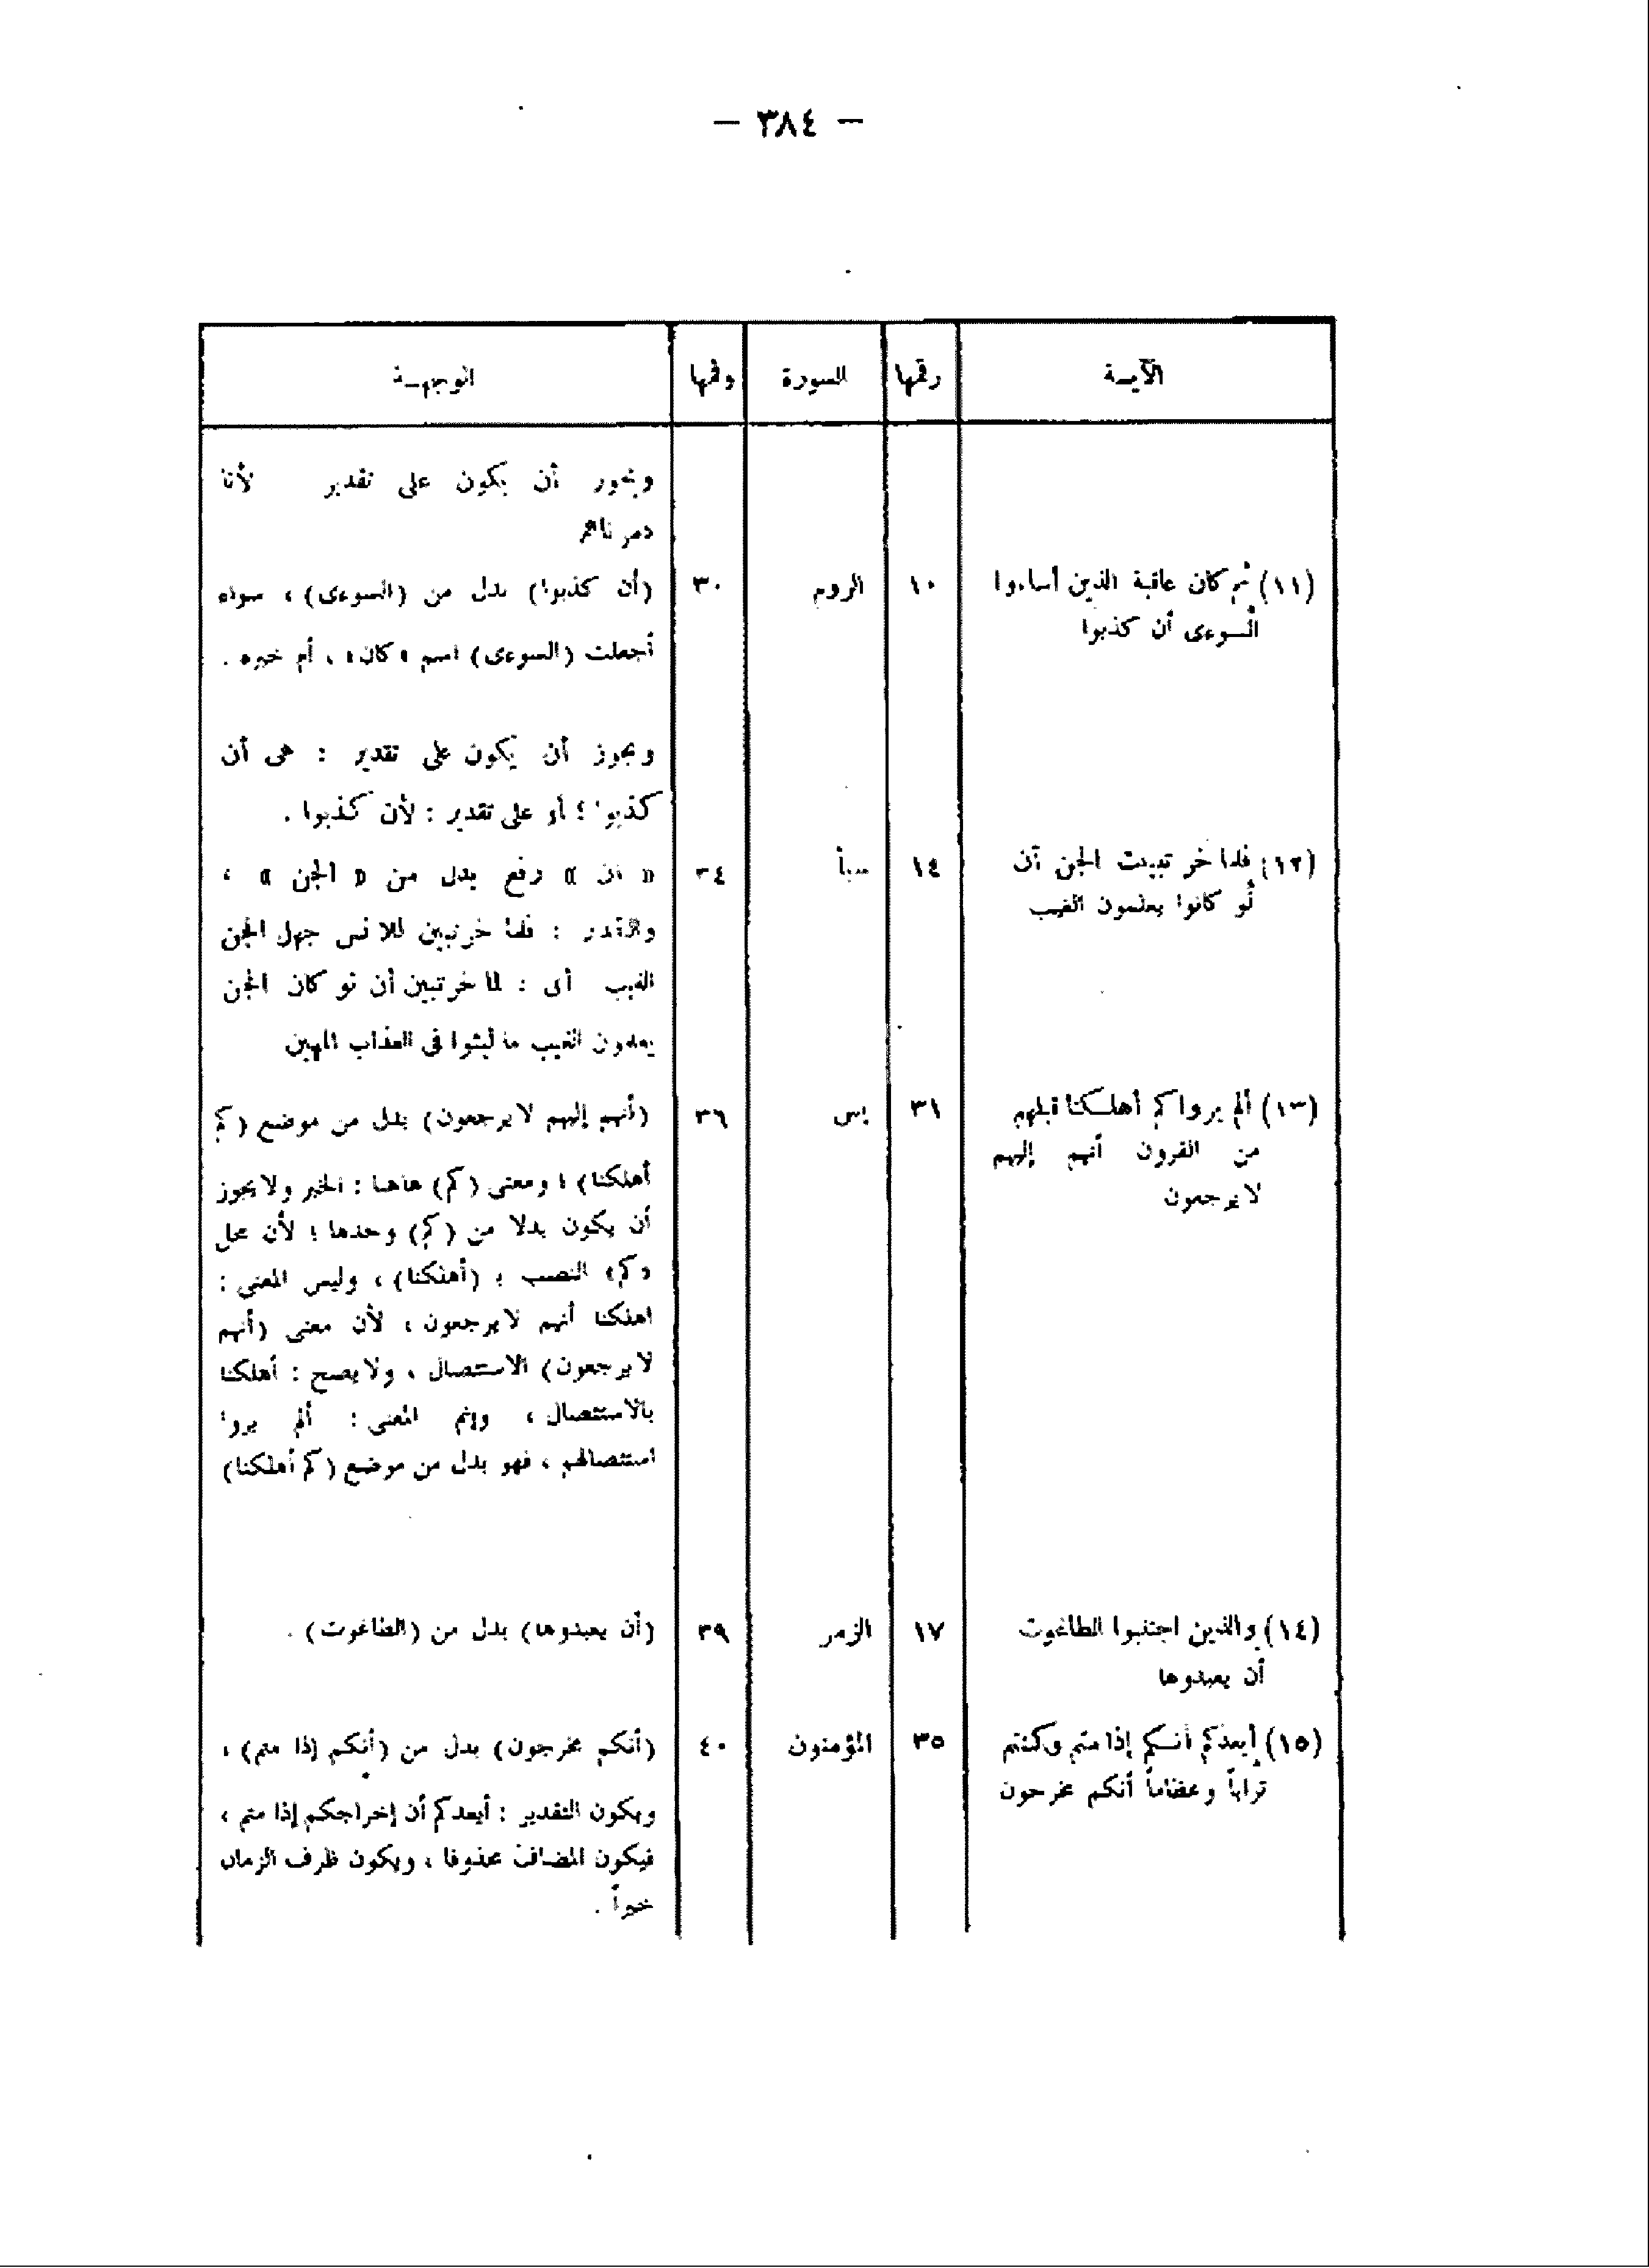 — ٣٨٤ —
الآيــة رقمها السورة رقمها الوجهــة
ويجوز أن يكون على تقدير لأنا
دمرناهم
(١١) ثم كان عاقبة الذين أساءوا ١٠ الروم ٣٠ (أن كذبوا) بدل من (السوءى) ، سواء
السوءى أن كذبوا
أجعلت (السوءى) اسم «كان» ، أم خبره .
ويجوز أن يكون على تقدير : هى أن
كذبوا ؛ أو على تقدير : لأن كذبوا .
(١٢) فلما خر تبينت الجن أن ١٤ سبأ ٣٤ « أن » رفع بدل من « الجن » ،
لو كانوا يعلمون الغيب
والتقدير : فلما خر تبين للانس جهل الجن
الغيب أى : لما خر تبين أن لو كان الجن
يعلمون الغيب ما لبثوا فى العذاب المهين
(١٣) ألم يروا كم أهلـكنا قبلهم ٣١ يس ٣٦ (أنهم إليهم لا يرجعون) بدل من موضع (كم
من القرون أنهم إليهم
لا يرجعون
أهلكنا) ؛ ومعنى (كم) هاهنا : الخبر ولا يجوز
أن يكون بدلا من (كم) وحدها ؛ لأن محل
«كم» النصب بـ (أهلكنا) ، وليس المعنى :
اهلكنا أنهم لا يرجعون ، لأن معنى (أنهم
لا يرجعون) الاستئصال ، ولا يصح : أهلكنا
بالاستئصال ، وإنم المعنى : ألم يروا
استئصالهم ، فهو بدل من موضع (كم أهلكنا)
(١٤) والذين اجتنبوا الطاغوت ١٧ الزمر ٣٩ (أن يعبدوها) بدل من (الطاغوت) .
أن يعبدوها
(١٥) أيعدكم أنـكم إذا متم وكنتم ٣٥ المؤمنون ٤٠ (أنكم مخرجون) بدل من (أنكم إذا متم) ،
تراباً وعظاماً أنكم مخرجون
ويكون التقدير : أيعدكم أن إخراجكم إذا متم ،
فيكون المضاف محذوفا ، ويكون ظرف الزمان
خبراً .